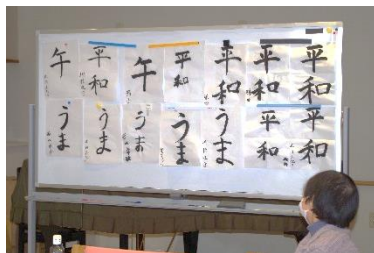 午
平和
午
平和
平和
平和
平和
うま
うま
うま
うま
うま
平和
平和